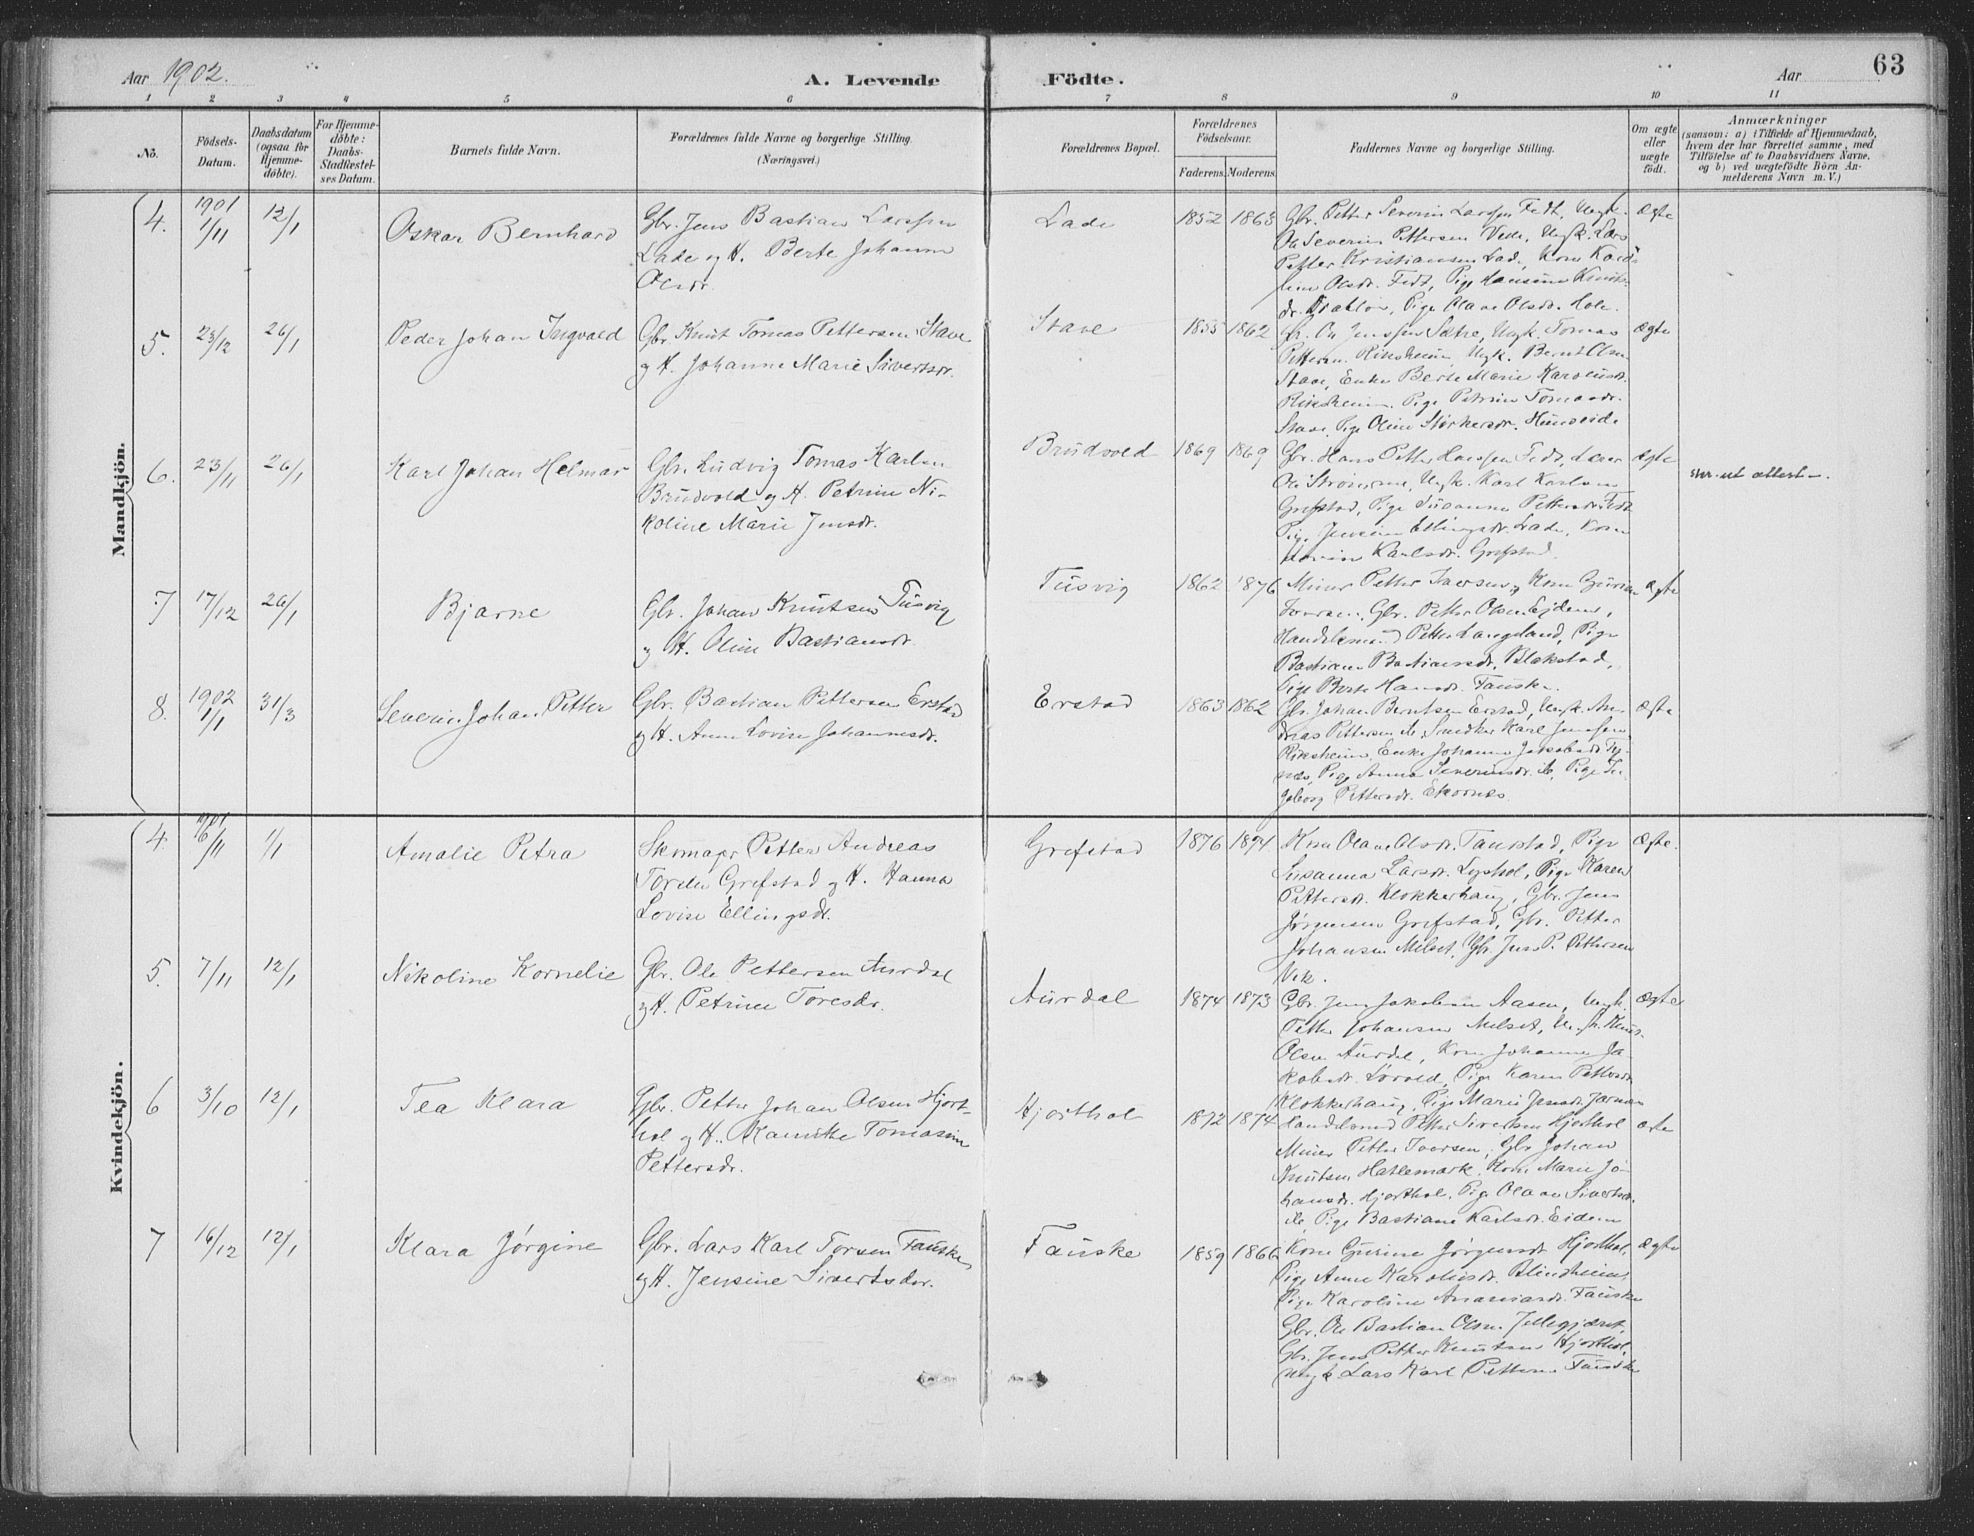 Aar 1902.
A. Levende
Födte.
Aar
63
1 2 3 4 5 6 7 8 9 10 11
No.
Födsels-
Datum.
Daabsdatum
(ogsaa for
Hjemme-
döbte).
For Hjemme-
döbte:
Daabs-
Stadfæstel-
ses Datum.
Barnets fulde Navn.
Forældrenes fulde Navne og borgerlige Stilling.
(Næringsvei.)
Forældrenes Bopæl.
Forældrenes
Födselsaar.
Faderens. Moderens.
Faddernes Navne og borgerlige Stilling.
Om ægte
eller
uægte
födt.
Anmærkninger
(saasom: a) i Tilfælde af Hjemmedaab,
hvem der har forrettet samme, med
Tilföielse af to Daabsvidners Navne,
og b) ved uægtefödte Börn An-
melderens Navn m. V.)
Mandkjön.
4. 1901 1/11 12/1 Oskar Bernhard
Gbr. Jens Bastian Larssen
Lade og H. Berte Johanne
Olsdr.
Lade 1852 1863
Gbr. Petter Severin Larssen Fedt, Ungk.
Ole Severin Pettersen Vede, Ungk. Lars
Petter Kristiansen Lade, Kone
Olsdr. Fedt, Pige Hansine Knuts-
dr. Pige Olave Olsdr. Hole.
Ægte
5. 23/12 26/1 Peder Johan Ingvald
Gbr. Knut Tomas Pettersen Stave
og H. Johanne Marie Sivertsdr.
Stave 1855 1862
Gbr. Ole Jenssen Sætre, Ungk. Tomas
Pettersen Riksheim, Ungk. Bernt Olsen
Stave, Enke Berte Marie Karolusdr.
Riksheim, Pige Petrine Tomasdr.
Stave, Pige Oline Størkersdr. Hunseide
Ægte
6. 23/11 26/1 Karl Johan Helmar
Gbr. Ludvig Tomas Karlsen
Brudvold og H. Petrine Ni-
koline Marie Jensdr.
Brudvold 1869 1869
Gbr. Hans Petter Hanssen Fedt, Lærer
Ole Strømme, Ungk. Karl Karlsen
Grefstad, Pige Susanna Pettersdr. Fedt
Pige Jensine Ellingsdr. Lade, Kone
Karlsdr. Grefstad.
Ægte
skr. ut attest
7 17/12 26/1 Bjarne
Gbr. Johan Knutsen Tusvig
og H. Oline Bastiansdr.
Tusvig 1862 1876
Minør Petter Iversen, Kone Gurine
Iversen, Gbr. Petter Olsen Ejdem,
Handelsmand Petter Langeland, Pige
Bastiane Bastiansdr. Blakstad,
Pige Berte Hansdr. Fauske.
Ægte
8. 1902 1/1 31/3 Severin Johan Petter
Gbr. Bastian Pettersen Erstad
og H. Anne Lovise Johannesdr.
Erstad 1863 1862
Gbr. Johan Berntsen Erstad, Ungk. An-
dreas Pettersen ib, Snedker Karl Jenssen
Riksheim, Enke Johanne Jakobsdr.
Pige Anna Severinsdr. ib, Pige In-
geborg Pettersdr. Ekornes.
Ægte
Kvindekjön.
4. 1901 16/11 1/1 Amalie Petra
Skomager Petter Andreas
Torsten Grefstad og H. Hanna
Lovise Ellingsdr.
Grefstad 1876 1874
Kone Olave Olsdr. Taurstad, Pige
Susanna Larsdr. Lyshol, Pige Karen
Pettersdr. Klokkerhaug, Gbr. Jens
Jørgensen Grefstad, Gbr. Petter
Johansen Melset, Gbr. Jens P. Pettersen
Vik.
Ægte.
5. 7/11 12/1 Nikoline Kornelie
Gbr. Ole Pettersen Aurdal
og H. Petrine Toresdr.
Aurdal 1874 1873
Gbr. Jens Jakobsen Aasen, Ungk.
Petter Johansen Melset, Knut
Olsen Aurdal, Kone Johanne Ja-
kobsdr. Løvold, Pige Karen Pettersdr.
Klokkerhaug, Pige Marie Jensdr. Jarnes
Ægte
6 3/10 12/1 Tea Klara
Gbr. Petter Johan Olsen Hjort-
hol og H. Tomasine
Pettersdr.
Hjorthol 1872 1874
Handelsmand Petter Sivertsen Hjorthol
Minør Petter Iversen, Gbr. Johan
Knutsen Hatlemark, Kone Marie Jo-
hansdr. Hjorthol, Pige Olave Sivertsdr.
ib, Pige Bastiane Karlsdr. Eidem
Ægte
7 16/12 12/1 Klara Jørgine
Gbr. Lars Karl Torsen Fauske
og H. Jensine Sivertsdr.
Fauske 1859 1866
Kone Gurine Jørgensdr. Hjorthol,
Pige Anne Karolusdr. Blindheim,
Pige Karoline Fauske
Gbr. Ole Bastian Olsen
Gbr. Jens Petter Knutsen Hjorthol,
Ungk. Lars Karl Pettersen Fauske
Ægte